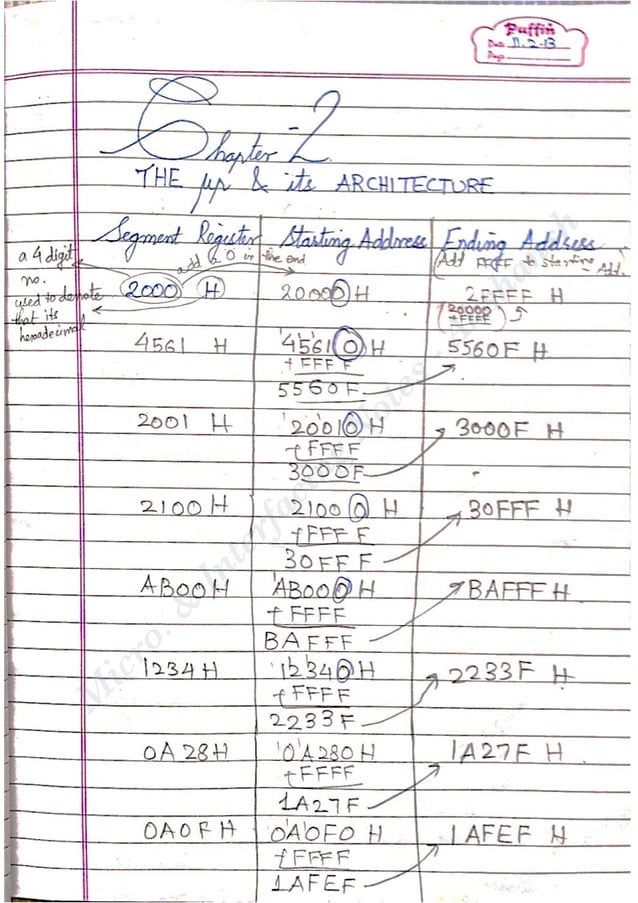 Puffin
Date 11.2.13
Page
Chapter-2
THE μp & its ARCHITECTURE
Segment Register Starting Address Ending Address
a 4 digit no. used to denote that its hexadecimal
add a 0 in the end
(Add FFFF to starting Add.
2000 H 20000 H 2FFFF H
(20000
+FFFF)
4561 H 45610 H 5560F H
+FFFF
5560F
2001 H 20010 H 3000F H
+FFFF
3000F
2100 H 21000 H 30FFF H
+FFFF
30FFF
AB00H AB000H BAFFF H
+FFFF
BAFFF
1234 H 12340H 2233F H
+FFFF
2233F
0A28H 0A280H 1A27F H
+FFFF
1A27F
0A0FH 0A0F0 H 1AFEF H
+FFFF
1AFEF